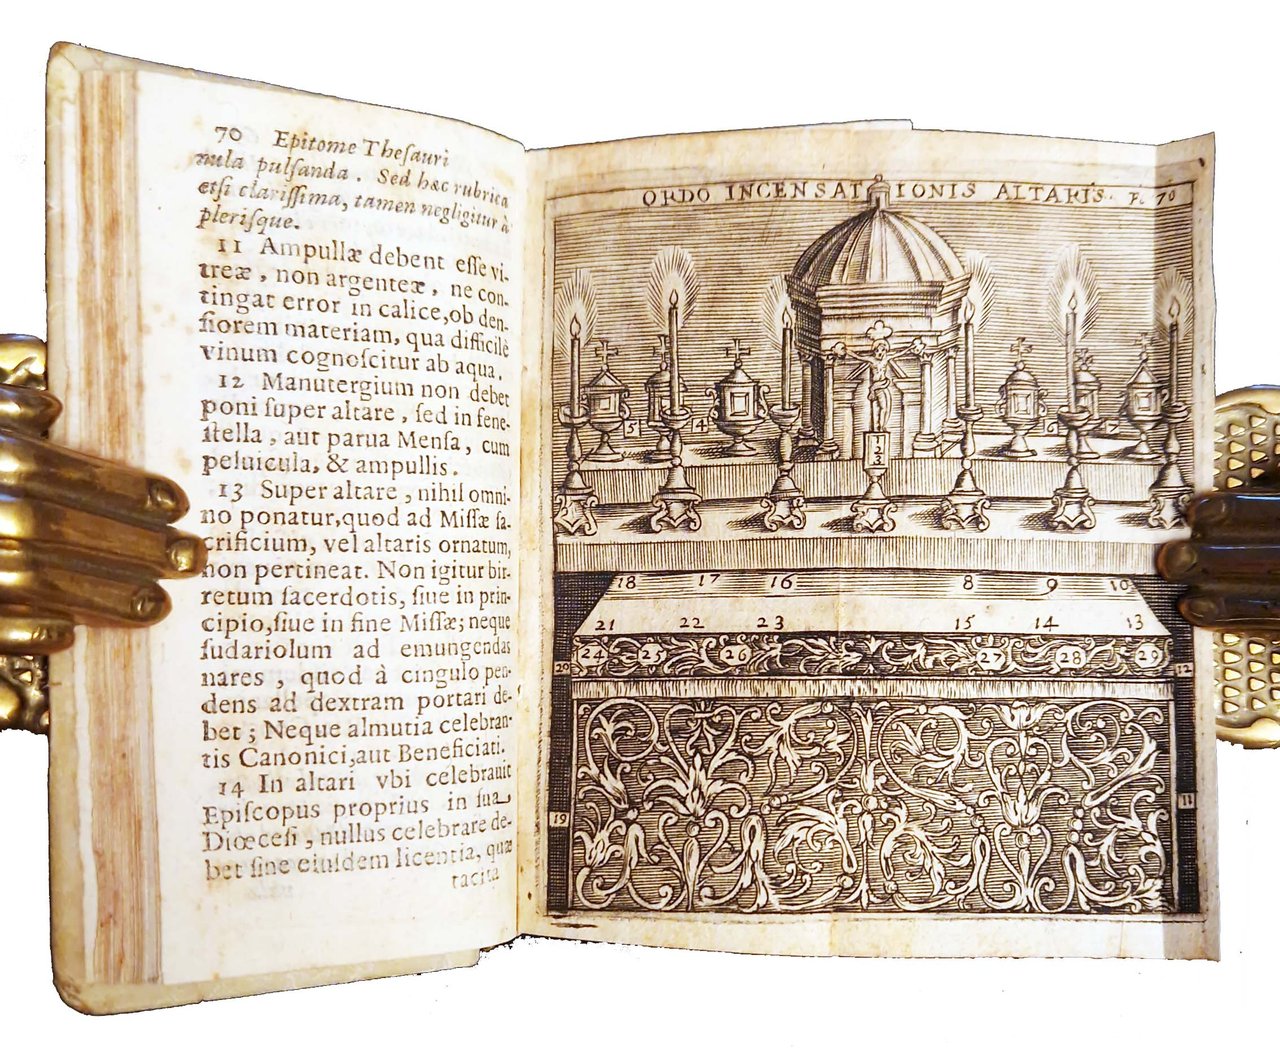 70 Epitome Theſauri
nula pulſanda. Sed hæc rubrica
etſi clariſſima, tamen negligitur à
pleriſque.
11 Ampullæ debent eſſe vi-
treæ, non argenteæ, ne con-
tingat error in calice, ob den-
ſiorem materiam, qua difficilè
vinum cognoſcitur ab aqua.
12 Manutergium non debet
poni ſuper altare, ſed in fene-
ſtella, aut parua Menſa, cum
peluicula, & ampullis.
13 Super altare, nihil omni-
no ponatur, quod ad Miſſæ ſa-
crificium, vel altaris ornatum,
non pertineat. Non igitur bir-
retum ſacerdotis, ſiue in prin-
cipio, ſiue in fine Miſſæ; neque
ſudariolum ad emungendas
nares, quod à cingulo pen-
dens ad dextram portari de-
bet; Neque almutia celebran-
tis Canonici, aut Beneficiati.
14 In altari vbi celebrauit
Epiſcopus proprius in ſua
Diœceſi, nullus celebrare de-
bet ſine eiuſdem licentia, quæ
tacita
ORDO INCENSATIONIS ALTARIS. F. 70
5 4 6 7
1
2
3
18 17 16 8 9 10
21 22 23 15 14 13
20 24 25 26 27 28 29 12
19 11